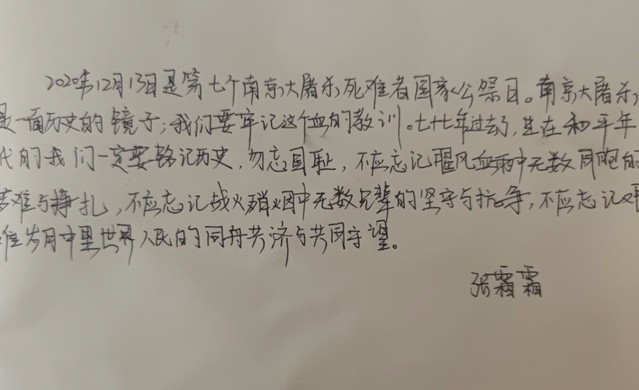 2020年12月13日是第七个南京大屠杀死难者国家公祭日。南京大屠杀
是一面历史的镜子;我们要牢记这个血的教训。七十七年过去了,生在和平年
代的我们一定要铭记历史,勿忘国耻,不应忘记腥风血雨中无数同胞的
苦难与挣扎,不应忘记战火硝烟中无数先辈的坚守与抗争,不应忘记
难岁月中里世界人民的同舟共济与共同守望。
张霜霜